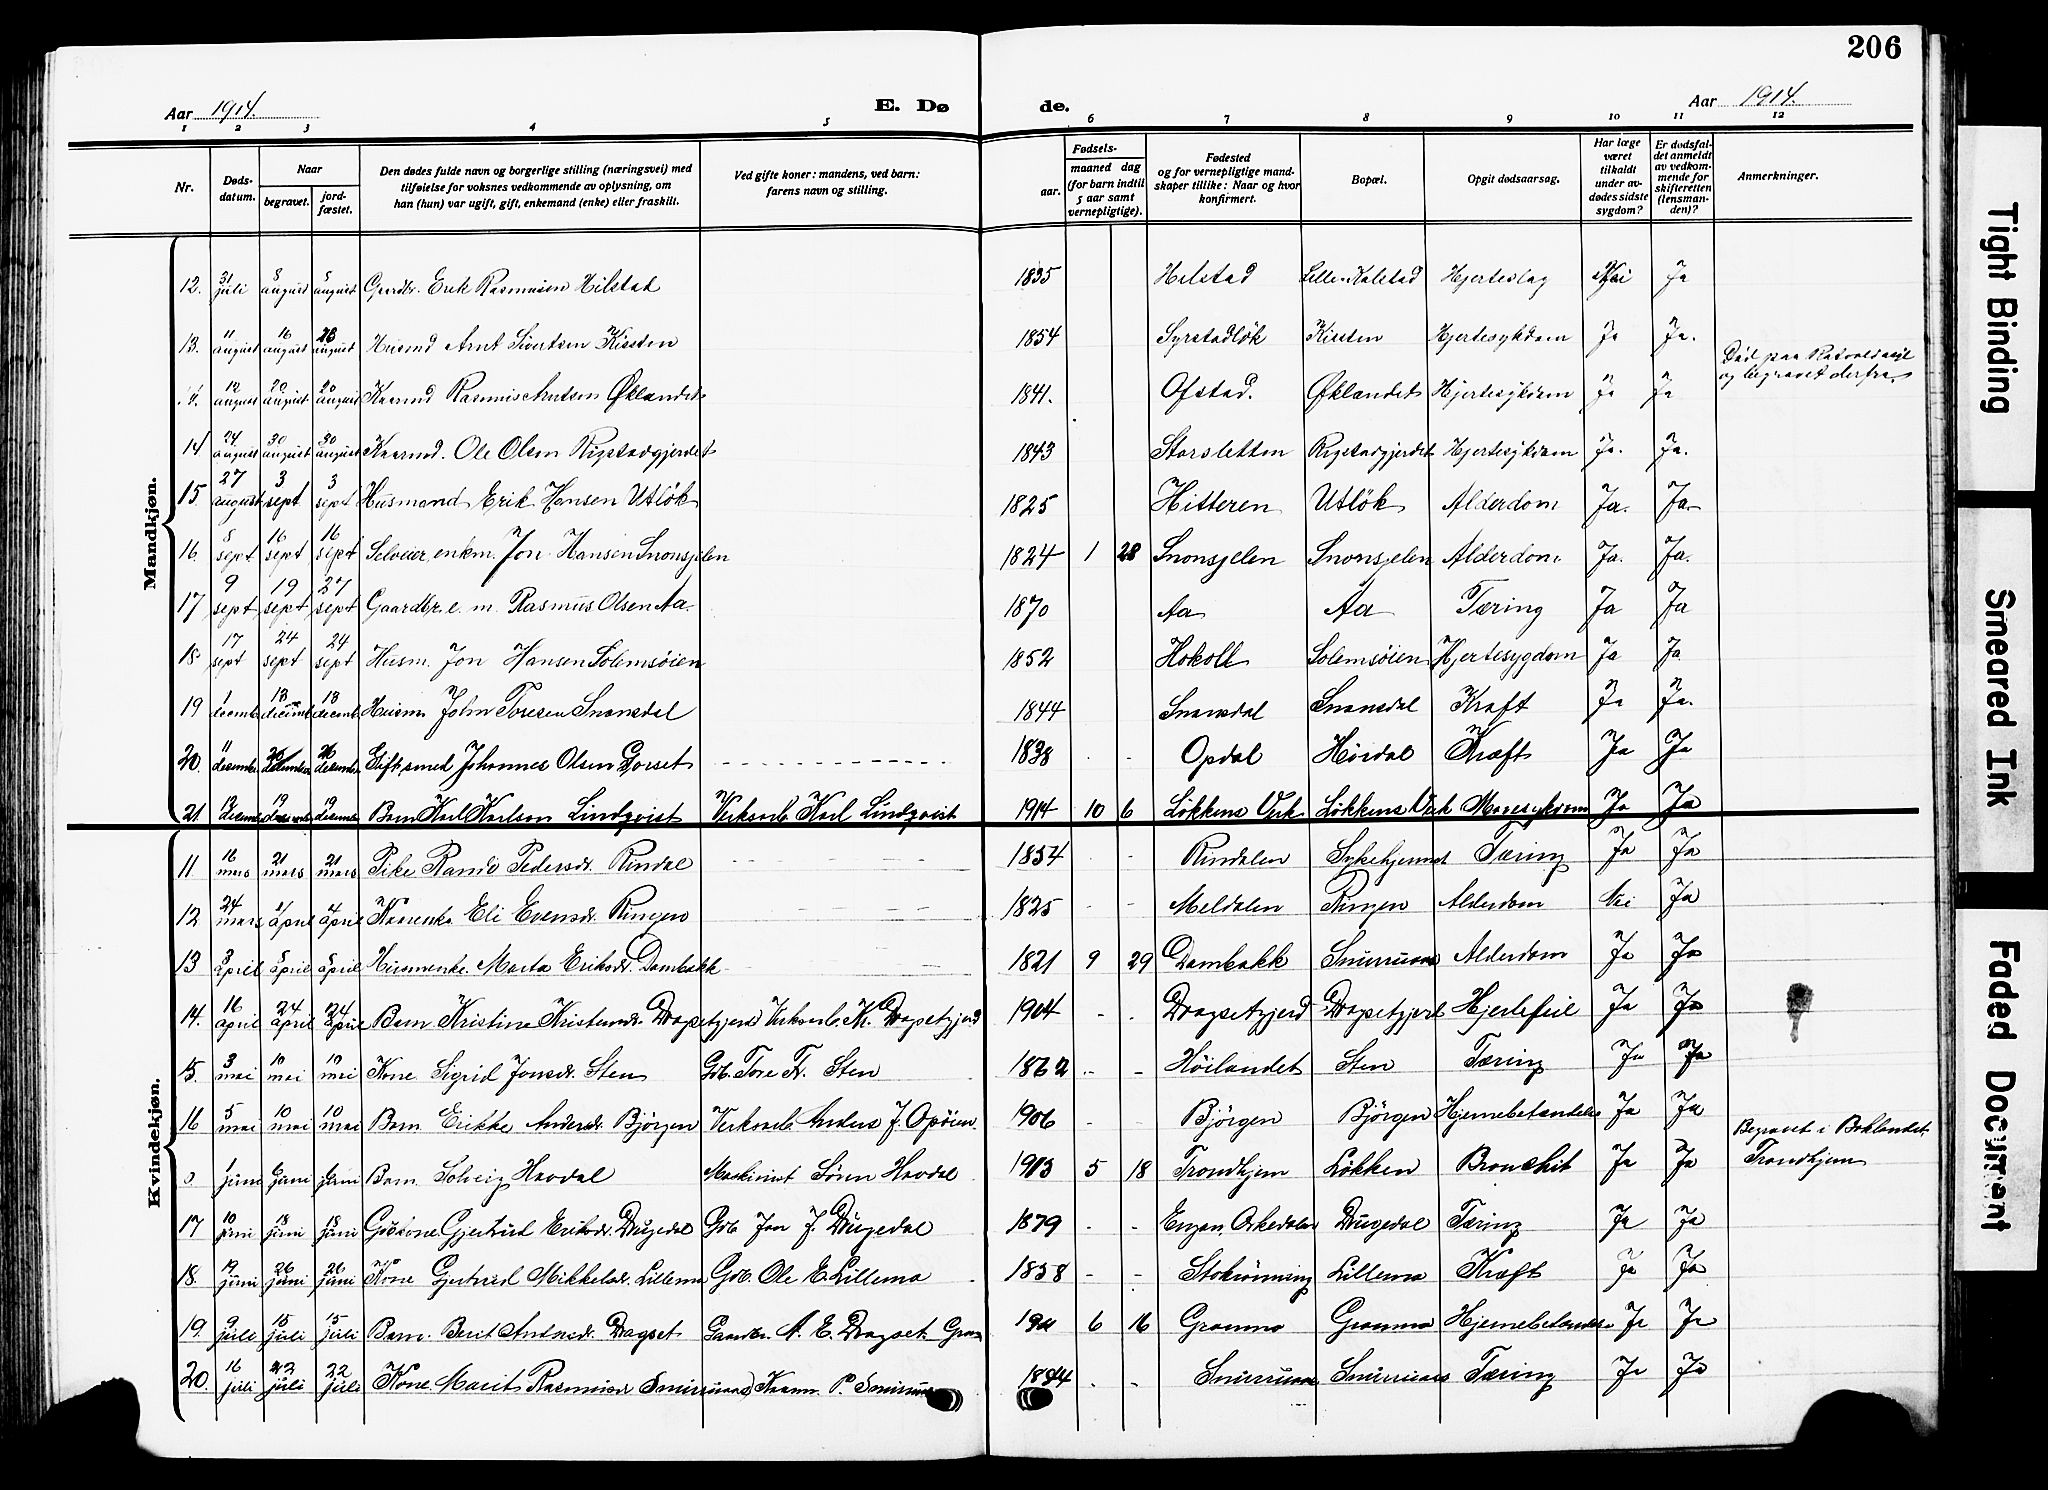 206
Aar 1914. E. Døde. Aar 1914.
1 2 3 4 5 6 7 8 9 10 11 12
Nr. Døds-datum. Naar begravet. jord-fæstet. Den dødes fulde navn og borgerlige stilling (næringsvei) med tilføielse for voksnes vedkommende av oplysning, om han (hun) var ugift, gift, enkemand (enke) eller fraskilt. Ved gifte koner: mandens, ved barn: farens navn og stilling. Fødsels- aar. maaned dag (for barn indtil 5 aar samt vernepligtige). Fødested og for vernepligtige mandskaper tillike: Naar og hvor konfirmert. Bopæl. Opgit dødsaarsag. Har læge været tilkaldt under avdødes sidste sygdom? Er dødsfaldet anmeldt av vedkommende for skifteretten (lensmanden)? Anmerkninger.
Mandkjøn.
12. 31 juli 8 august 5 august Gaardbr. Erik Rasmusen Hilstad 1835 Hilstad Lille-Kalstad Hjerteslag Nei Ja
13. 11 august 16 august august Husmd Arnt Sivertsen Kissten 1854 Syrstadløk Kissten Hjertesykdom Ja Ja.
12 august 20 august 20 august Kaarmd Rasmus Knutsen Øklandet 1841. Ofstad. Øklandet Hjertesykdom Ja Ja Død paa og begravet derfra
14 24 august 30 august 30 august Kaarmd. Ole Olsen Rigstadgjerdet 1843 Storsletten Rigstadgjerdet Hjertesykdom Ja. Ja.
15 27 august 3 sept 3 sept Husmand Erik Hansen Utløk 1825 Hitteren Utløk Alderdom Ja. Ja
16. 8 sept 16 sept 16 sept Selveier, enkm. Jon Hansen Snonsjelen 1824 1 28 Snonsjelen Snonsjelen Alderdom Ja. Ja.
17 9 sept 19 sept 27 sept Gaardbr. e. m. Rasmus Olsen Aa. 1870 Aa Aa Tæring Ja Ja
18 17 sept 24 sept 24 sept Husm. Jon Hansen Solemsøien 1852 Hokoll Solemsøien Hjertesygdom Ja Ja
19 1 decemb 13 decemb 13 decemb Husm John Toresen Snonsdal 1844 Snonsdal Snonsdal Kræft Ja Ja.
20. 11 desembr desember desember Gift smed Johannes Olsen Gorset 1838 Opdal Høidal Kræft Ja Ja
21. 12 desember 19 desember 19 desember Barn Karl Karlson Lindqvist Verksarb Karl Lindqvist 1914 10 6 Løkkens Verk Løkkens Verk Mavesykdom Ja Ja
Kvindekjøn.
11 16 mars 21 mars 21 mars Pike Randi Pedersdr. Rindal 1854 Rindalen Sykehjemmet Tæring Ja Ja
12 24 mars 4 april 4 april Kaarenke Eli Evensdr. Ringen 1825 Meldalen Ringen Alderdom Nei Ja
13 3 april 5 april 5 april Husmenke. Marta Eriksdr. Dambakk 1821 9 29 Dambakk Snurruaas Alderdom Ja Ja
14. 16 april 24 april 24 april Barn Kristine Kristensdr. Dragsetgjerd Verksarb. Kr. Dragsetgjerd 1904 Dragsetgjerd Dragsetgjerd Hjertefeil Ja Ja
15. 3 mai 10 mai 10 mai Kone Sigrid Jonsdr. Sten Gdb. Tore Tr. Sten 1862 Høilandet Sten Tæring Ja Ja
16 5 mai 10 mai 10 mai Barn Erikke Andersdr Bjørgen Verksarb. Anders J. Opøien. 1906 Bjørgen Bjørgen Hjernebetændelse Ja Ja
1 juni juni juni Barn Solveig Havdal Maskinist Sønn Havdal 1913 5 18 Trondhjem Løkken Bronchit Ja Ja Begravet i Baklandet, Trondhjem
17 10 juni 18 juni 18 juni Gdskone. Gjertrud Eriksdr. Drugedal Gdb Jon J. Drugedal 1879 Engan, Orkedalen Drugedal Tæring Ja Ja
18. 19 juni 26 juni 26 juni Kone Gjertrud Mikkelsdr. Lillemo Gdb. Ole E. Lillemo 1858 Stokrønning Lillemo Kræft Ja Ja
19. 9 juli 15 juli 15 juli Barn. Berit Antonsdr. Dragset Gaardbr. A. E. Dragset 1911 6 16 Gramma Gramma Hjernebetændelse Ja Ja
20. 16 juli 22 juli 22 juli Kone. Marit Rasmusdr Snurruaas Kaarm. P. Snurruaas 1844 Snurruaas Snurruaas Tæring Ja Ja
Tight Binding
Smeared Ink
Faded Document